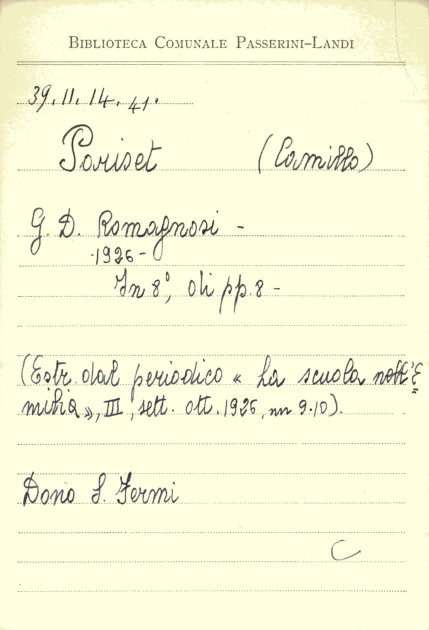 BIBLIOTECA COMUNALE PASSERINI-LANDI
39.11.14.41.
Pariset (Camillo)
G. D. Romagnosi -
-1926-
In 8°, di pp. 8 -
(Estr. dal periodico « La scuola nell'E=
milia », III, sett. ott. 1926, nn 9-10).
Dono S. Fermi
C